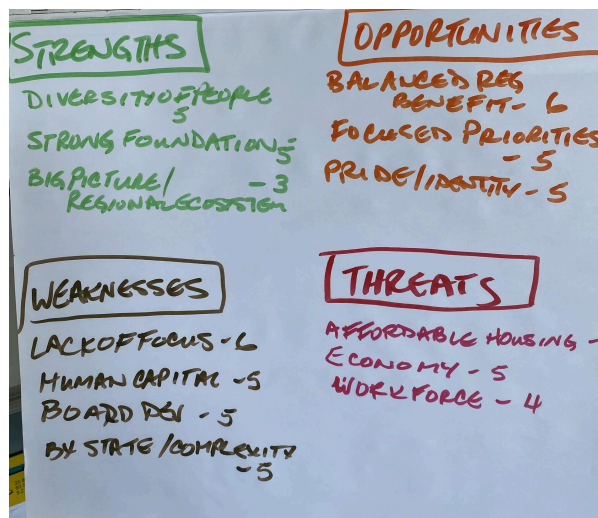 STRENGTHS
DIVERSITY OF PEOPLE
5
STRONG FOUNDATION -
5
BIG PICTURE/ - 3
REGIONAL ECOSYSTEM
OPPORTUNITIES
BALANCED REG
BENEFIT - 6
FOCUSED PRIORITIES
- 5
PRIDE/IDENTITY - 5
WEAKNESSES
LACK OF FOCUS - 6
HUMAN CAPITAL - 5
BOARD DEV - 5
STATE/COMPLEXITY
- 5
THREATS
AFFORDABLE HOUSING -
ECONOMY - 5
WORKFORCE - 4